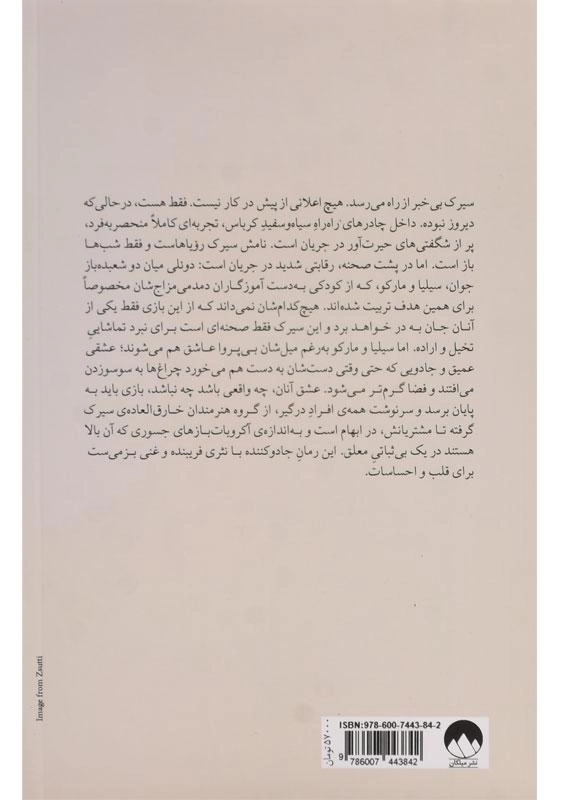 سیرک بی‌خبر از راه می‌رسد. هیچ اعلانی از پیش در کار نیست. فقط هست، درحالی‌که
دیروز نبوده. داخل چادرهای راه‌راهِ سیاه‌وسفیدِ کرباس، تجربه‌ای کاملاً منحصربه‌فرد،
پر از شگفتی‌های حیرت‌آور در جریان است. نامش سیرک رؤیاهاست و فقط شب‌ها
باز است. اما در پشت صحنه، رقابتی شدید در جریان است: دوئلی میان دو شعبده‌باز
جوان، سیلیا و مارکو، که از کودکی به‌دست آموزگاران دمدمی‌مزاج‌شان مخصوصاً
برای همین هدف تربیت شده‌اند. هیچ‌کدام‌شان نمی‌داند که از این بازی فقط یکی از
آنان جان به در خواهد برد و این سیرک فقط صحنه‌ای است برای نبرد تماشاییِ
تخیل و اراده. اما سیلیا و مارکو به‌رغم میل‌شان بی‌پروا عاشق هم می‌شوند؛ عشقی
عمیق و جادویی که حتی وقتی دست‌شان به دست هم می‌خورد چراغ‌ها به سوسوزدن
می‌افتند و فضا گرم‌تر می‌شود. عشق آنان، چه واقعی باشد چه نباشد، بازی باید به
پایان برسد و سرنوشت همه‌ی افرادِ درگیر، از گروه هنرمندان خارق‌العاده‌ی سیرک
گرفته تا مشتریانش، در ابهام است و به‌اندازه‌ی آکروبات‌بازهای جسوری که آن بالا
هستند در یک بی‌ثباتیِ معلق. این رمانِ جادوکننده با نثری فریبنده و غنی بزمی‌ست
برای قلب و احساسات.
Image from Zsutti
ISBN:978-600-7443-84-2
۵۷۰۰۰ تومان
9 786007 443842
نشر میلکان